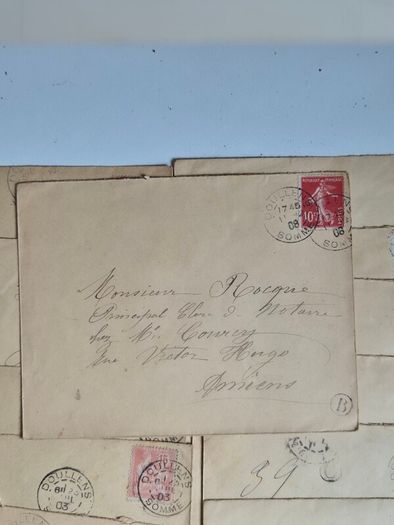 DOULLENS
17 45
11
08
SOMME
REPUBLIQUE FRANCAISE
10
08
SOMME
Monsieur Rocque
Principal Clerc de Notaire
chez Mr. Courcy
Rue Victor Hugo
Amiens
B
DOULLENS
03
DOULLENS
03
SOMME
39